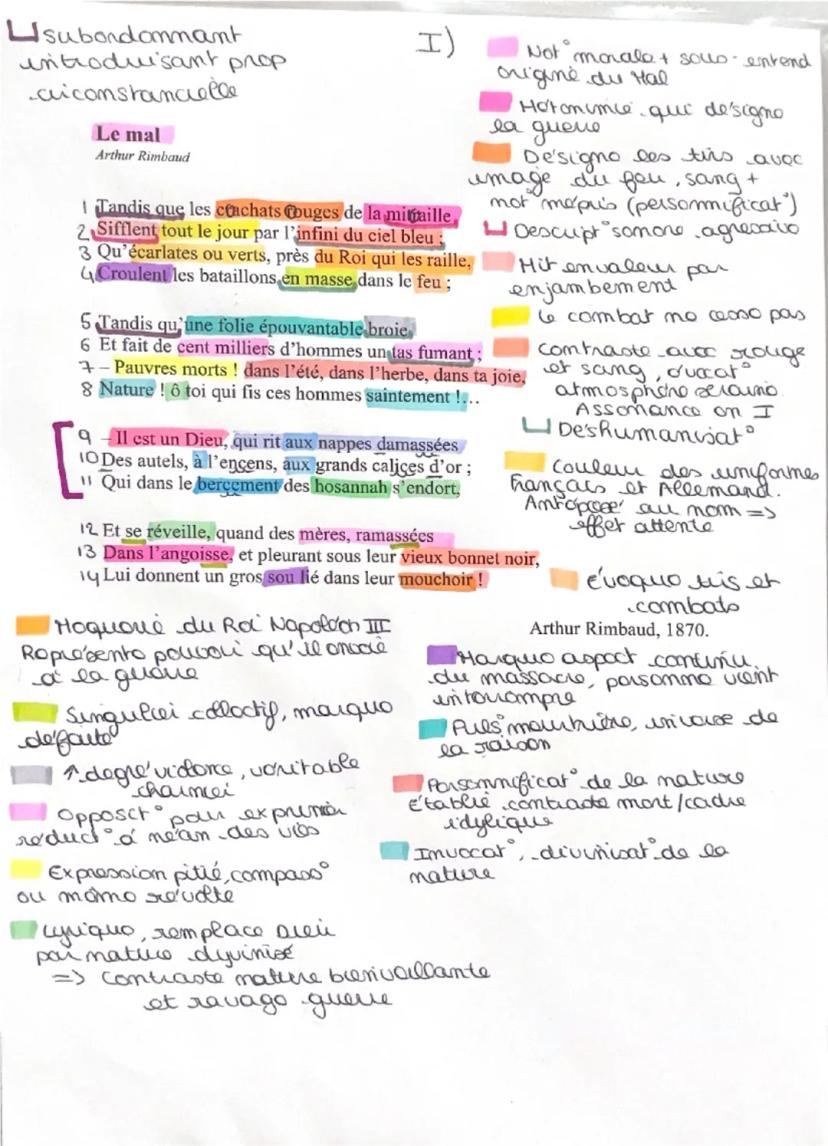 subordonnant
introduisant prop
circonstancielle
I)
Not° morale + sous-entend
origine du Mal
Métonimie qui désigne
la guerre
Désigne les tirs avec
image du feu, sang +
mot mépris (personnificat°)
Descript° sonore agressive
Mit en valeur par
enjambement
Le combat ne cesse pas
Contraste avec rouge
et sang, évocat°
atmosphère sereine
Assonance en I
Déshumanisat°
Couleur des uniformes
Français et Allemand.
Antéposé au nom =>
effet attente
Évoque tirs et
combats
Le mal
Arthur Rimbaud
1 Tandis que les crachats rouges de la mitraille,
2 Sifflent tout le jour par l'infini du ciel bleu ;
3 Qu'écarlates ou verts, près du Roi qui les raille,
4 Croulent les bataillons en masse dans le feu ;
5 Tandis qu'une folie épouvantable broie,
6 Et fait de cent milliers d'hommes un tas fumant ;
7 – Pauvres morts ! dans l'été, dans l'herbe, dans ta joie,
8 Nature ! ô toi qui fis ces hommes saintement !...
9 – Il est un Dieu, qui rit aux nappes damassées
10 Des autels, à l'encens, aux grands calices d'or ;
11 Qui dans le bercement des hosannah s'endort,
12 Et se réveille, quand des mères, ramassées
13 Dans l'angoisse, et pleurant sous leur vieux bonnet noir,
14 Lui donnent un gros sou lié dans leur mouchoir !
Arthur Rimbaud, 1870.
Moquerie du Roi Napoléon III
Représente pouvoir qu'il
à la guerre
Singulier collectif, marque
défaite
↑ degré violence, véritable
charnier
Opposit° pour exprimer
réduct° à néan des vies
Expression pitié, compass°
ou même révolte
Lyrique, remplace Dieu
par nature dyvinisé
=> Contraste nature bienveillante
et ravage guerre
Marque aspect continu
du massacre, personne vient
interrompre
Puls° meurtrière, inverse de
la raison
Personnificat° de la nature
établie contraste mort/cadre
idylique
Invocat°, divinisat° de la
nature